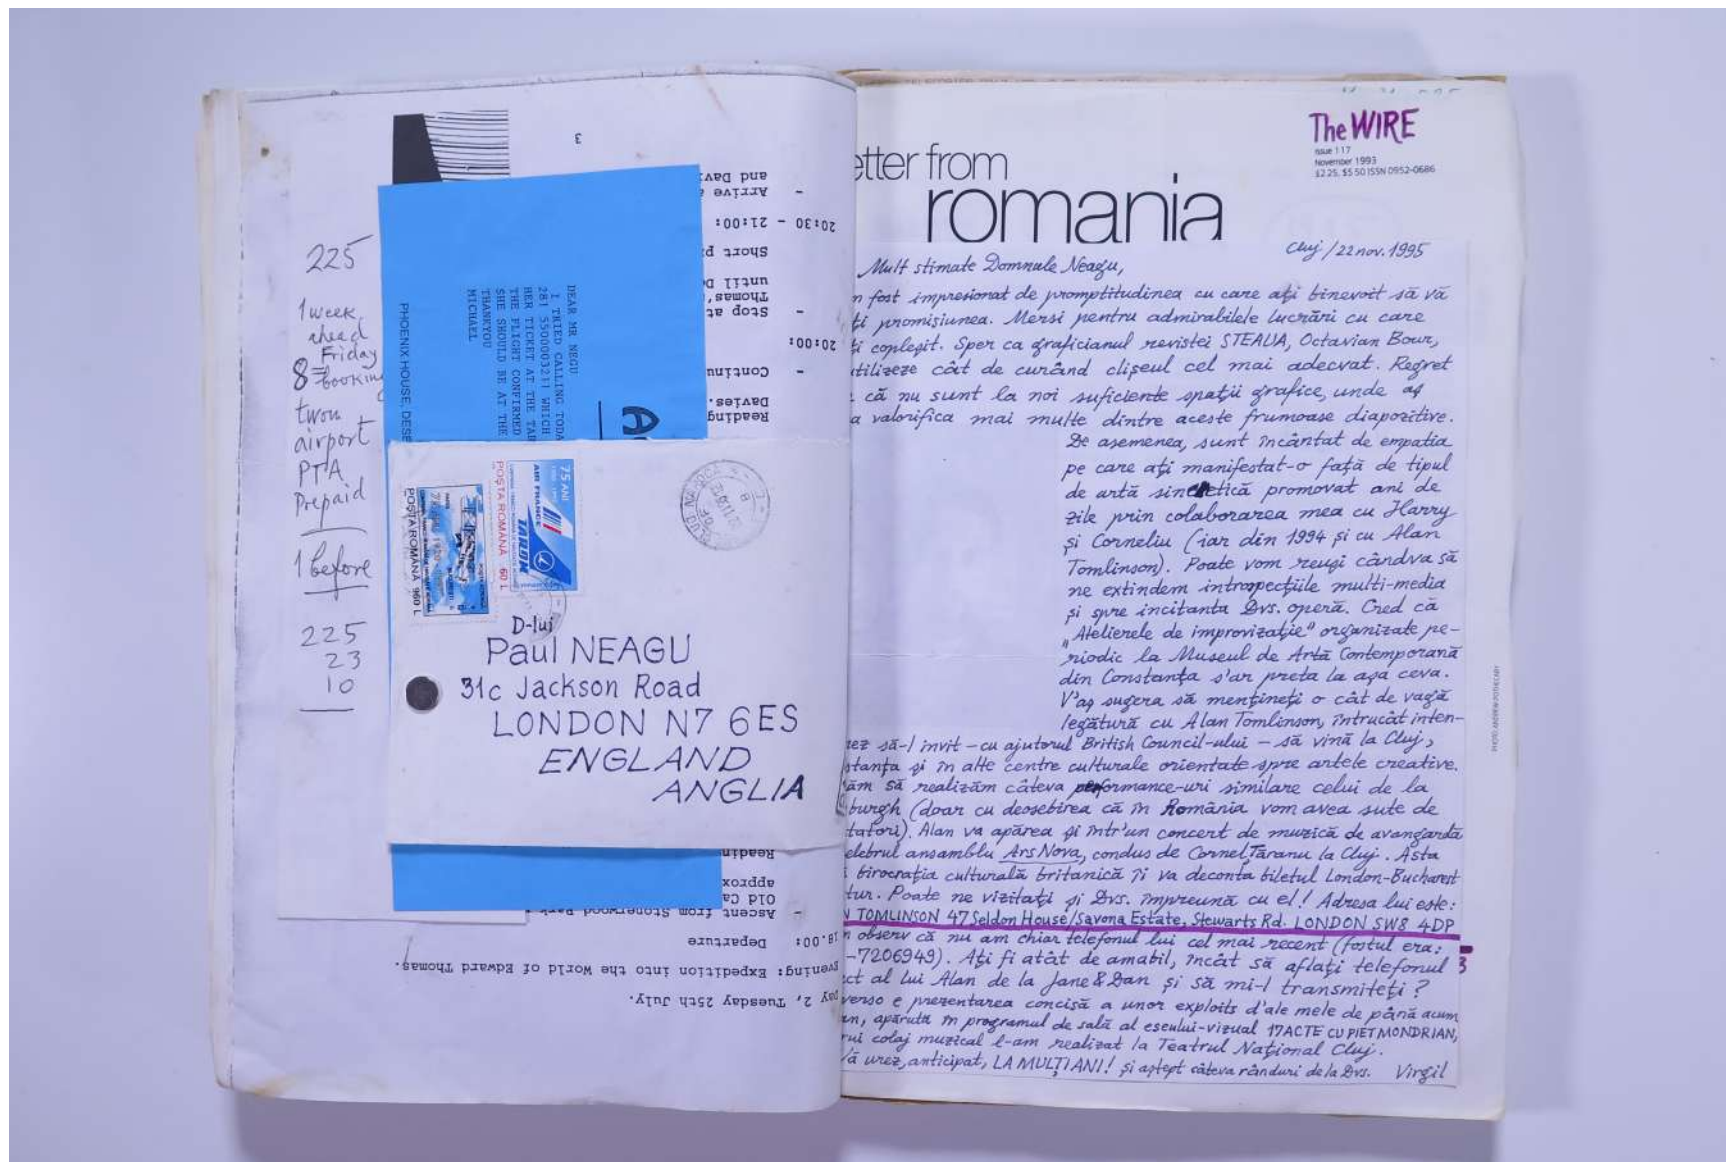 225
1 week
ahead
Friday
8 = booking
airport
PTA
Prepaid
1 before
225
23
10
3
and Davi
- Arrive
20:30 - 21:00:
Short p
until D
Thomas'
- Stop at
20:00:
- Continu
Davies.
Reading
PHOENIX HOUSE, DESB
DEAR MR NEGU
I TRIED CALLING TODA
281 5500003211 WHICH
HER TICKET AT THE TAR
THE FLIGHT CONFIRMED
SHE SHOULD BE AT THE
THANKYOU
MICHAEL
75 ANI
AIR FRANCE
TAROM
POSTA ROMÂNĂ 60 L
POSTA ROMÂNĂ 960 L
D-lui
Paul NEAGU
31c Jackson Road
LONDON N7 6ES
ENGLAND
ANGLIA
Readin
approx
Old Ca
- Ascent from Stonerwood Park
18.00: Departure
Evening: Expedition into the World of Edward Thomas.
Day 2, Tuesday 25th July.
The WIRE
Issue 117
November 1993
£2.25, $5.50 ISSN 0952-0686
etter from
romania
Cluj / 22 nov. 1995
Mult stimate Domnule Neagu,
n fost impresionat de promptitudinea cu care ați binevoit să vă
ți promisiunea. Mersi pentru admirabilele lucrări cu care
ți copleșit. Sper ca graficianul revistei STEAUA, Octavian Bour,
utilizeze cât de curând clișeul cel mai adecvat. Regret
că nu sunt la noi suficiente spații grafice, unde aș
a valorifica mai multe dintre aceste frumoase diapozitive.
De asemenea, sunt încântat de empatia
pe care ați manifestat-o față de tipul
de artă sincretică promovat ani de
zile prin colaborarea mea cu Harry
și Corneliu (iar din 1994 și cu Alan
Tomlinson). Poate vom reuși cândva să
ne extindem introspecțiile multi-media
și spre incitanta Dvs. operă. Cred că
„Atelierele de improvizație" organizate pe-
riodic la Museul de Artă Contemporană
din Constanța s'ar preta la așa ceva.
V'aș sugera să mențineți o cât de vagă
legătură cu Alan Tomlinson, întrucât inten-
nez să-l invit - cu ajutorul British Council-ului - să vină la Cluj,
stanța și în alte centre culturale orientate spre artele creative.
ăm să realizăm câteva performance-uri similare celui de la
burgh (doar cu deosebirea că în România vom avea sute de
tatori). Alan va apărea și într'un concert de muzică de avangardă
elebrul ansamblu Ars Nova, condus de Cornel Țăranu la Cluj. Asta
birocrația culturală britanică îi va deconta biletul London-Bucharest
tur. Poate ne vizitați și Dvs. împreună cu el! Adresa lui este:
N TOMLINSON 47 Seldon House/Savona Estate, Stewarts Rd. LONDON SW8 4DP
n observ că nu am chiar telefonul lui cel mai recent (fostul era:
-7206949). Ați fi atât de amabil, încât să aflați telefonul
ct al lui Alan de la Jane & Dan și să mi-l transmiteți?
verso e prezentarea concisă a unor exploits d'ale mele de până acum
an, apărută în programul de sală al eseului-vizual 17 ACTE CU PIET MONDRIAN,
rui colaj muzical l-am realizat la Teatrul Național Cluj.
Vă urez, anticipat, LA MULȚI ANI! și aștept câteva rânduri de la Dvs. Virgil
3